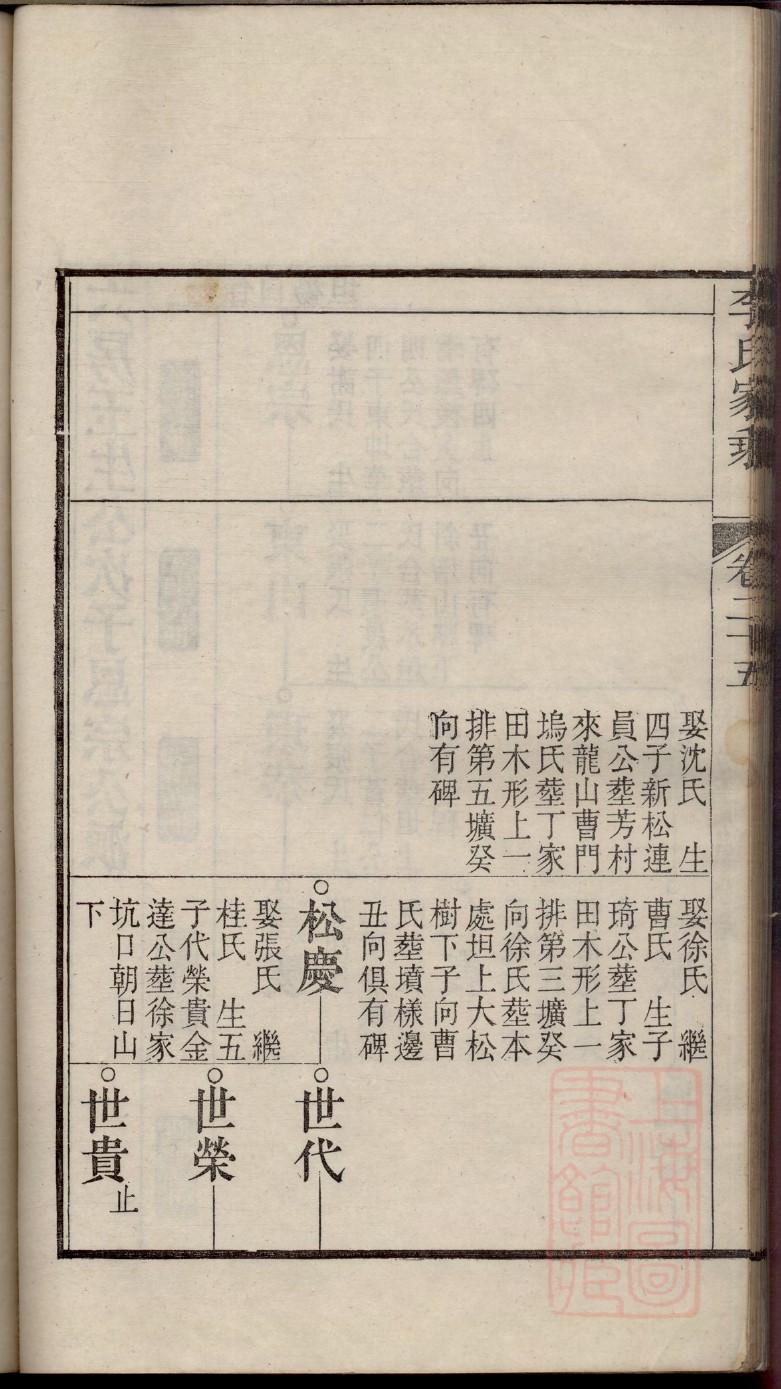 氏家乘
卷二十五
娶沈氏 生
四子新松連
員公塟芳村
來龍山曹門
塢氏塟丁家
田木形上一
排第五壙癸
向有碑
娶徐氏 繼
曹氏 生子
琦公塟丁家
田木形上一
排第三壙癸
向徐氏塟本
處坦上大松
樹下子向曹
氏塟墳樣邊
丑向俱有碑
松慶
娶張氏 繼
桂氏 生五
子代榮貴金
達公塟徐家
坑口朝日山
下
世代
世榮
世貴止
上海圖書館藏